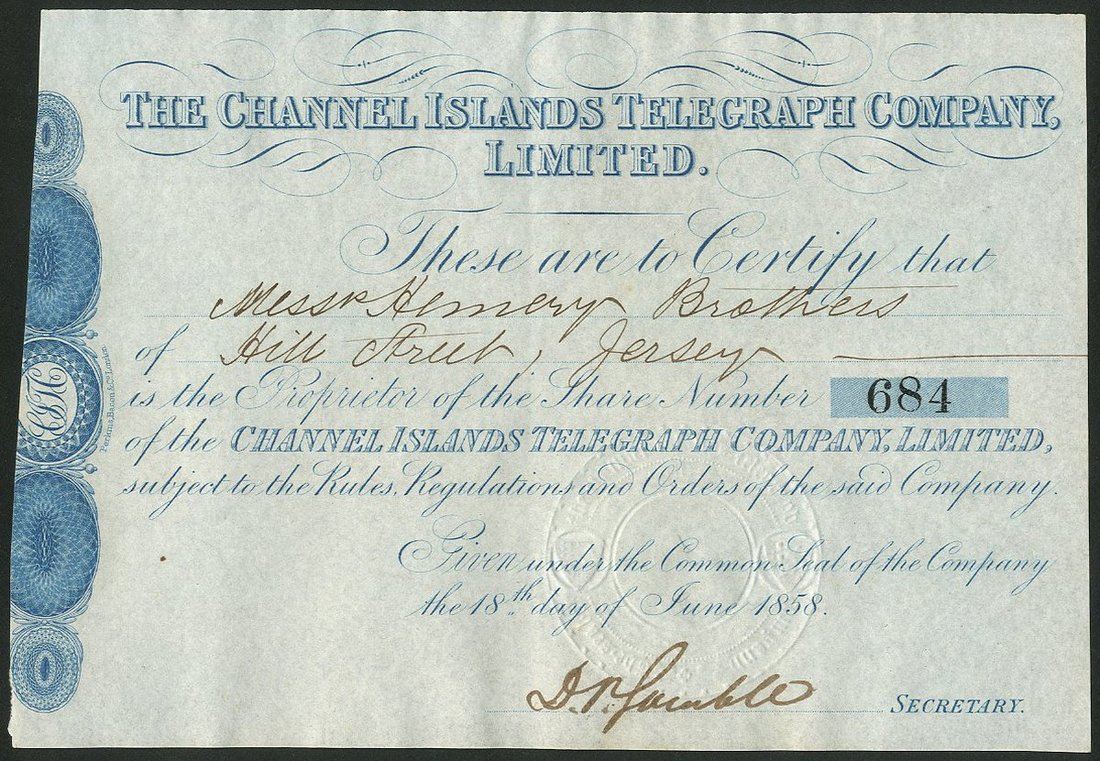 THE CHANNEL ISLANDS TELEGRAPH COMPANY,
LIMITED.
These are to Certify that
Messrs Hemery Brothers
of Hill Street, Jersey
is the Proprietor of the Share Number 684
of the CHANNEL ISLANDS TELEGRAPH COMPANY, LIMITED,
subject to the Rules, Regulations and Orders of the said Company.
Given under the Common Seal of the Company
the 18th day of June 1858.
D. P. Gamble SECRETARY.
Perkins, Bacon & Co. London